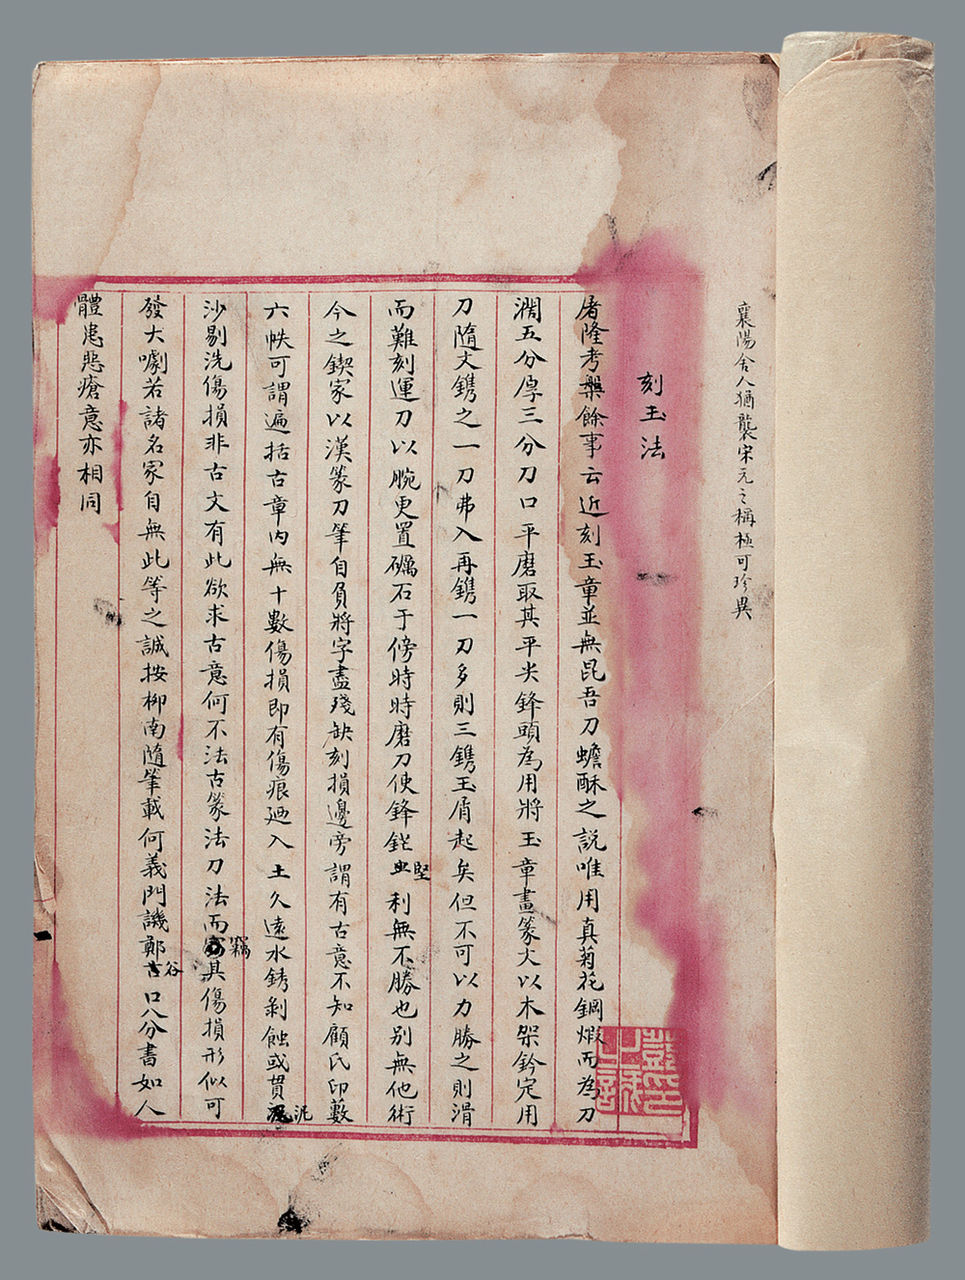 襄陽舍人猶襲宋元之稱極可珍異
刻玉法
屠隆考槃餘事云近刻玉章並無昆吾刀蟾酥之說唯用真菊花鋼煅而為刀
濶五分厚三分刀口平磨取其平尖鋒頭為用將玉章畫篆文以木架鈐定用
刀隨文鎸之一刀弗入再鎸一刀多則三鎸玉屑起矣但不可以力勝之則滑
而難刻運刀以腕更置礪石于傍時時磨刀使鋒鋩堅利無不勝也別無他術
今之鍥家以漢篆刀筆自負將字畫殘缺刻損邊旁謂有古意不知顧氏印藪
六帙可謂遍括古章內無十數傷損即有傷痕廼入土久遠水銹剝蝕或貫泥
沙剔洗傷損非古文有此欲求古意何不法古篆法刀法而竊其傷損形似可
發大噱若諸名家自無此等之誠按柳南隨筆載何義門譏鄭谷口八分書如人
體患惡瘡意亦相同